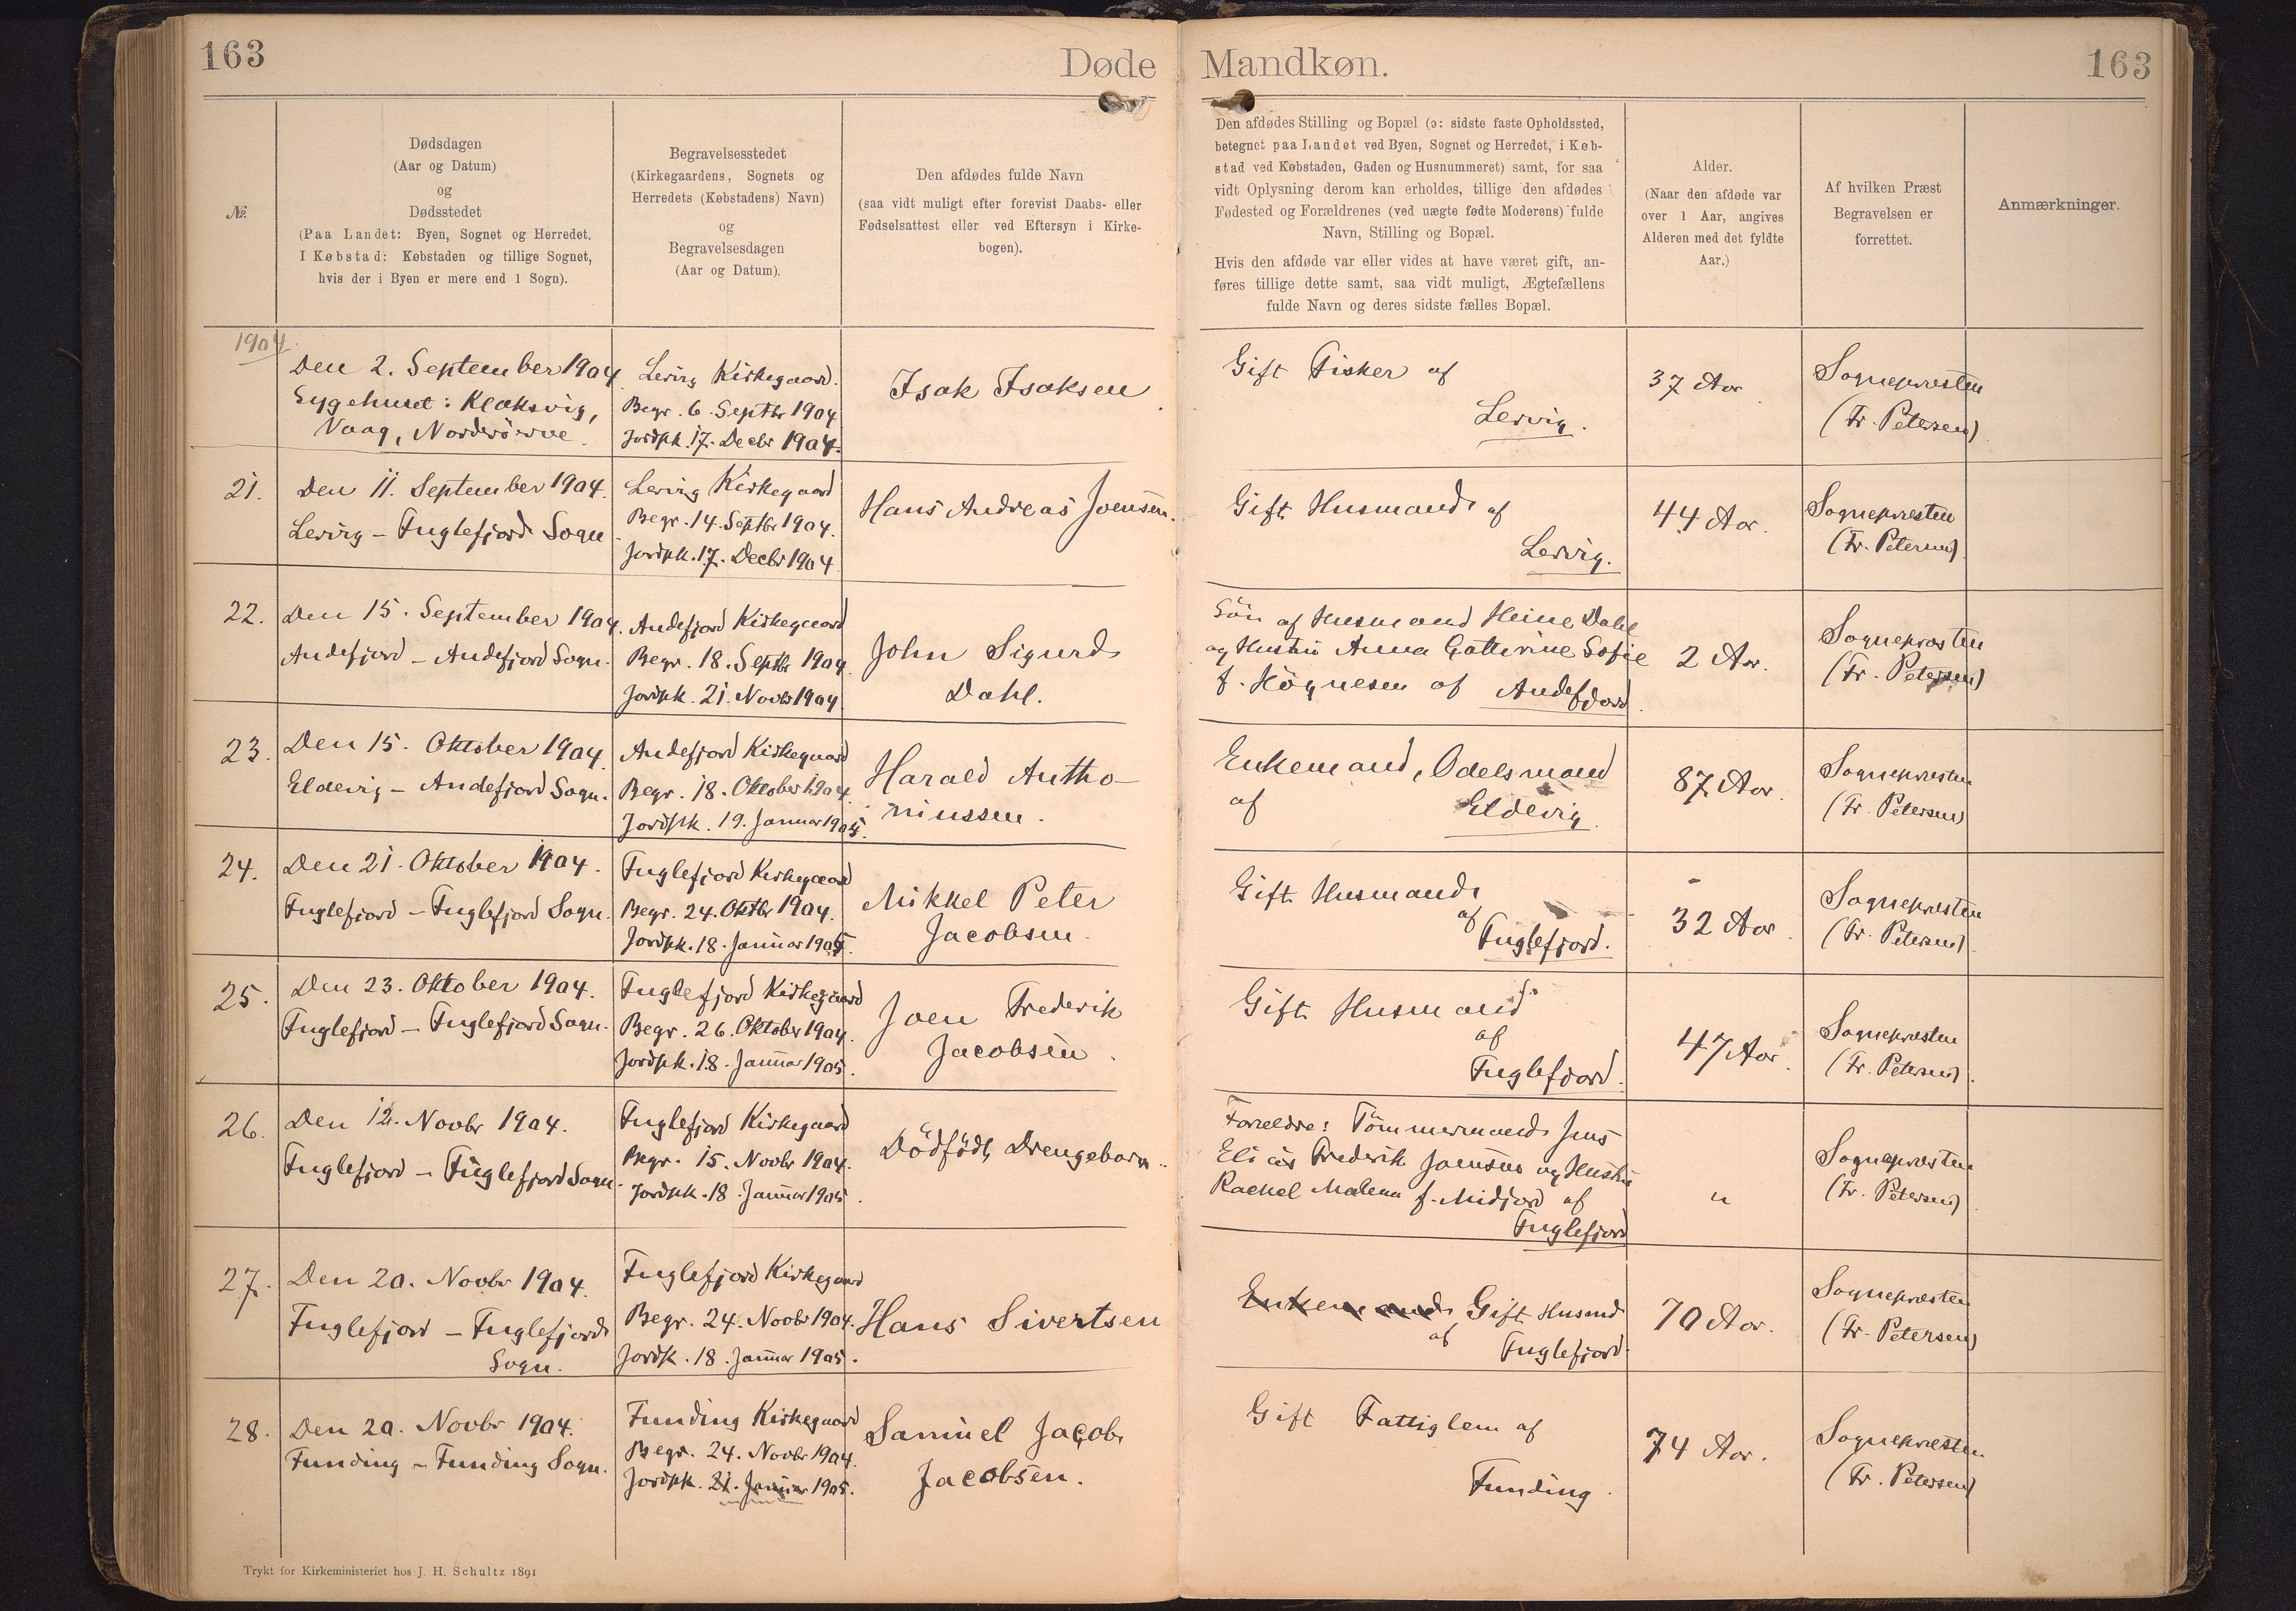 163
Døde
Mandkøn.
163
№.
Dødsdagen
(Aar og Datum)
og
Dødsstedet
(Paa Landet: Byen, Sognet og Herredet.
I Købstad: Købstaden og tillige Sognet,
hvis der i Byen er mere end 1 Sogn).
Begravelsesstedet
(Kirkegaardens, Sognets og
Herredets (Købstadens) Navn)
og
Begravelsesdagen
(Aar og Datum).
Den afdødes fulde Navn
(saa vidt muligt efter forevist Daabs- eller
Fødselsattest eller ved Eftersyn i Kirke-
bogen).
Den afdødes Stilling og Bopæl (ɔ: sidste faste Opholdssted,
betegnet paa Landet ved Byen, Sognet og Herredet, i Køb-
stad ved Købstaden, Gaden og Husnummeret) samt, for saa
vidt Oplysning derom kan erholdes, tillige den afdødes
Fødested og Forældrenes (ved uægte fødte Moderens) fulde
Navn, Stilling og Bopæl.
Hvis den afdøde var eller vides at have været gift, an-
føres tillige dette samt, saa vidt muligt, Ægtefællens
fulde Navn og deres sidste fælles Bopæl.
Alder.
(Naar den afdøde var
over 1 Aar, angives
Alderen med det fyldte
Aar.)
Af hvilken Præst
Begravelsen er
forrettet.
Anmærkninger.
1904.
Den 2. September 1904
Sygehuset: Klaksvig,
Vaag, Norderöerne.
Lervig Kirkegaard.
Begr. 6. Septbr 1904
Jordpk. 17. Decbr 1904.
Isak Isaksen
Gift Fisker af
Lervig.
37 Aar
Sognepræsten
(Fr. Petersen)
21.
Den 11. September 1904.
Lervig – Fuglefjord Sogn
Lervig Kirkegaard
Begr. 14. Septbr 1904.
Jordpk. 17. Decbr 1904
Hans Andreas Joensen.
Gift Husmand af
Lervig.
44 Aar.
Sognepræsten
(Fr. Petersen)
22.
Den 15. September 1904.
Andefjord – Andefjord Sogn.
Andefjord Kirkegaard
Begr. 18. Septbr 1904.
Jordpk. 21. Novbr 1904
John Sigurd
Dahl.
Sön af Husmand Heine Dahl
og Hustru Anna Catterine Sofie
f. Högnesen af Andefjord.
2 Aar.
Sognepræsten
(Fr. Petersen)
23.
Den 15. Oktober 1904.
Eldevig – Andefjord Sogn.
Andefjord Kirkegaard
Begr. 18. Oktober 1904.
Jordpk. 19. Januar 1905.
Harald Antho-
niussen.
Enkemand, Odelsmand
af Eldevig.
87 Aar.
Sognepræsten
(Fr. Petersen)
24.
Den 21. Oktober 1904.
Fuglefjord – Fuglefjord Sogn.
Fuglefjord Kirkegaard
Begr. 24. Oktbr 1904.
Jordpk. 18. Januar 1905.
Mikkel Peter
Jacobsen.
Gift Husmand
af
Fuglefjord.
32 Aar.
Sognepræsten
(Fr. Petersen)
25.
Den 23. Oktober 1904.
Fuglefjord – Fuglefjord Sogn.
Fuglefjord Kirkegaard
Begr. 26. Oktober 1904.
Jordpk. 18. Januar 1905.
Joen Frederik
Jacobsen.
Gift Husmand
af
Fuglefjord.
47 Aar.
Sognepræsten
(Fr. Petersen)
26.
Den 12. Novbr 1904.
Fuglefjord – Fuglefjord Sogn.
Fuglefjord Kirkegaard
Begr. 15. Novbr 1904.
Jordpk. 18. Januar 1905.
Dödfödt Drengebarn.
Forældre: Tömmermand Jens
Elias Frederik Joensen og Hustru
Rachel Malena f. Midjord af
Fuglefjord
"
Sognepræsten
(Fr. Petersen)
27.
Den 20. Novbr 1904.
Fuglefjord – Fuglefjord
Sogn.
Fuglefjord Kirkegaard
Begr. 24. Novbr 1904.
Jordpk. 18. Januar 1905.
Hans Sivertsen
Enkemand Gift Husmd
af Fuglefjord.
70 Aar.
Sognepræsten
(Fr. Petersen)
28.
Den 20. Novbr 1904.
Funding – Funding Sogn.
Funding Kirkegaard
Begr. 24. Novbr 1904.
Jordpk. 21. Januar 1905.
Samuel Jacob
Jacobsen.
Gift Fattiglem af
Funding.
74 Aar.
Sognepræsten
(Fr. Petersen)
Trykt for Kirkeministeriet hos J. H. Schultz 1891